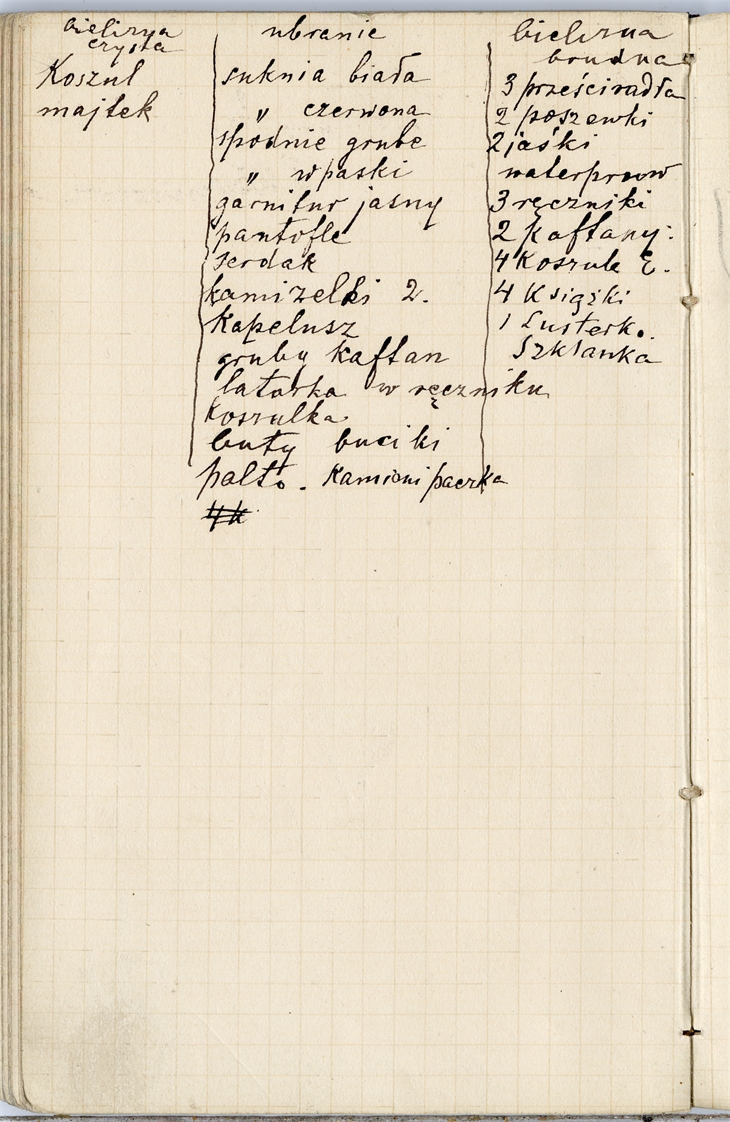 bielizna
czysta
Koszul
majtek
ubranie
suknia biała
„ czerwona
spodnie grube
„ w paski
garnitur jasny
pantofle
serdak
kamizelki 2.
kapelusz
gruby kaftan
latarka w ręczniku
koszulka
buty buciki
palto. Kamioni paczka
4 k
bielizna
brudna
3 prześcieradła
2 poszewki
2 jaśki
waterproow
3 ręczniki
2 kaftany.
4 Koszule E.
4 Książki
1 Lusterk.
Szklanka